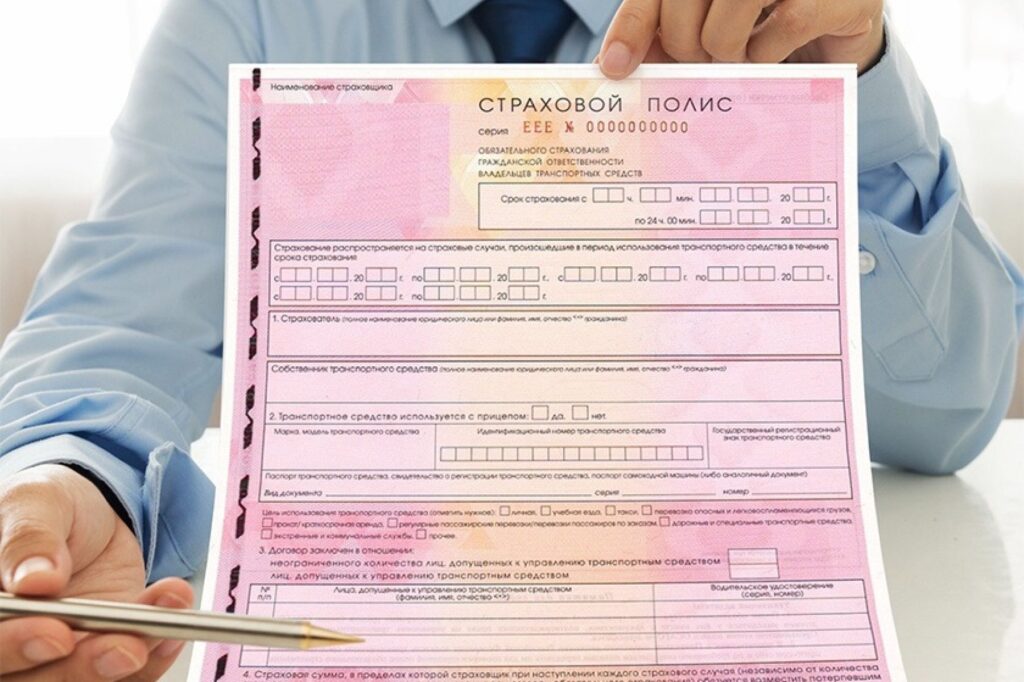 Наименование страховщика
СТРАХОВОЙ ПОЛИС
серия ЕЕЕ № 0000000000
ОБЯЗАТЕЛЬНОГО СТРАХОВАНИЯ
ГРАЖДАНСКОЙ ОТВЕТСТВЕННОСТИ
ВЛАДЕЛЬЦЕВ ТРАНСПОРТНЫХ СРЕДСТВ
Срок страхования с ч. мин. 20 г.
по 24 ч. 00 мин. 20 г.
Страхование распространяется на страховые случаи, произошедшие в период использования транспортного средства в течение
срока страхования
с . 20 г. по . 20 г., с . 20 г. по . 20 г.
с . 20 г. по . 20 г.
1. Страхователь (полное наименование юридического лица или фамилия, имя, отчество <*> гражданина)
Собственник транспортного средства (полное наименование юридического лица или фамилия, имя, отчество <*> гражданина)
2. Транспортное средство используется с прицепом: да, нет.
Марка, модель транспортного средства Идентификационный номер транспортного средства Государственный регистрационный
знак транспортного средства
Паспорт транспортного средства, свидетельство о регистрации транспортного средства, паспорт самоходной машины (либо аналогичный документ)
Вид документа серия номер
Цель использования транспортного средства (отметить нужное): личная, учебная езда, такси, перевозка опасных и легковоспламеняющихся грузов,
прокат/краткосрочная аренда, регулярные пассажирские перевозки/перевозки пассажиров по заказам, дорожные и специальные транспортные средства,
экстренные и коммунальные службы, прочее.
3. Договор заключен в отношении:
неограниченного количества лиц, допущенных к управлению транспортным средством
лиц, допущенных к управлению транспортным средством
№ п/п Лица, допущенные к управлению транспортным средством Водительское удостоверение
(фамилия, имя, отчество <*>) (серия, номер)
4. Страховая сумма, в пределах которой страховщик при наступлении каждого страхового случая (независимо от количества
обязуется возместить потерпевшим